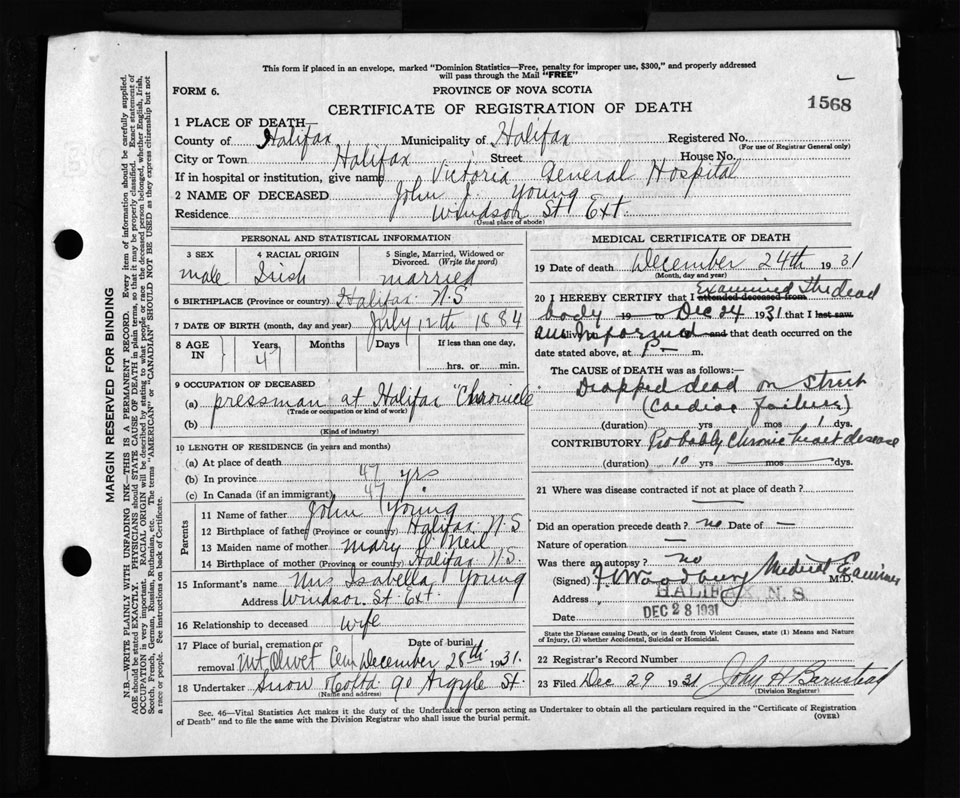 This form if placed in an envelope, marked "Dominion Statistics—Free, penalty for improper use, $300," and properly addressed
will pass through the Mail "FREE"
FORM 6.
PROVINCE OF NOVA SCOTIA
CERTIFICATE OF REGISTRATION OF DEATH
1568
1 PLACE OF DEATH
County of Halifax Municipality of Halifax Registered No.
(For use of Registrar General only)
City or Town Halifax Street House No.
If in hospital or institution, give name Victoria General Hospital
2 NAME OF DECEASED John J. Young
Residence Windsor St Ext.
(Usual place of abode)
PERSONAL AND STATISTICAL INFORMATION
3 SEX
male
4 RACIAL ORIGIN
Irish
5 Single, Married, Widowed or Divorced. (Write the word)
married
6 BIRTHPLACE (Province or country) Halifax N.S
7 DATE OF BIRTH (month, day and year) July 12th 1884
8 AGE IN
Years 47
Months
Days
If less than one day,
hrs. or min.
9 OCCUPATION OF DECEASED
(a) pressman at Halifax "Chronicle"
(Trade or occupation or kind of work)
(b)
(Kind of industry)
10 LENGTH OF RESIDENCE (in years and months)
(a) At place of death
(b) In province 47 yrs
(c) In Canada (if an immigrant) 47
Parents
11 Name of father John Young
12 Birthplace of father (Province or country) Halifax N.S
13 Maiden name of mother Mary O'Neil
14 Birthplace of mother (Province or country) Halifax N.S.
15 Informant's name Mrs Isabella Young
Address Windsor St Ext.
16 Relationship to deceased wife
17 Place of burial, cremation or removal Mt Olivet Cem
Date of burial December 28th 1931.
18 Undertaker Snow & Co Ltd 90 Argyle St.
(Name and address)
MEDICAL CERTIFICATE OF DEATH
19 Date of death December 24th 1931
(Month, day and year)
20 I HEREBY CERTIFY that I attended deceased from Examined the dead
body 19 to Dec 24 1931 that I last saw
am informed alive and that death occurred on the
date stated above, at P— m.
The CAUSE of DEATH was as follows:—
Dropped dead on street
(Cardiac failure)
(duration) yrs mos 1 dys.
CONTRIBUTORY Probably Chronic heart disease
(duration) 10 yrs — mos — dys.
21 Where was disease contracted if not at place of death?
Did an operation precede death? no Date of —
Nature of operation —
Was there an autopsy? no
(Signed) Woodbury Medical Examiner M.D.
Address HALIFAX, N. S
Date DEC 28 1931
State the Disease causing Death, or in death from Violent Causes, state (1) Means and Nature of Injury, (2) whether Accidental, Suicidal or Homicidal.
22 Registrar's Record Number
23 Filed Dec 29 1931 John H Barnstead
(Division Registrar)
Sec. 46—Vital Statistics Act makes it the duty of the Undertaker or person acting as Undertaker to obtain all the particulars required in the "Certificate of Registration
of Death" and to file the same with the Division Registrar who shall issue the burial permit.
(OVER)
MARGIN RESERVED FOR BINDING
N.B.—WRITE PLAINLY WITH UNFADING INK—THIS IS A PERMANENT RECORD. Every item of information should be carefully supplied.
AGE should be stated EXACTLY. PHYSICIANS should STATE CAUSE OF DEATH in plain terms, so that it may be properly classified. Exact statement of
OCCUPATION is very important. RACIAL ORIGIN will be described by stating to what people or race the deceased person belonged, whether English, Irish,
Scotch, French, German, Russian, Ruthenian, etc. The terms "AMERICAN" or "CANADIAN" SHOULD NOT BE USED as they express citizenship but not
a race or people. See instructions on back of Certificate.